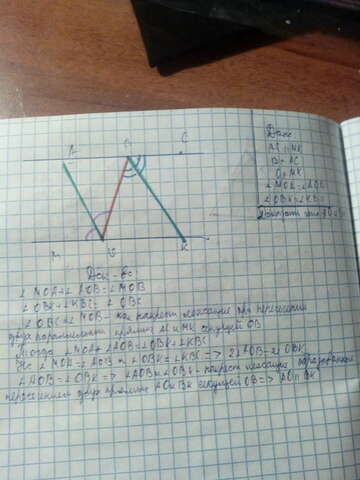 A B C
M O K
Дано:
AC || MK
B ∈ AC
O ∈ MK
∠MOA = ∠AOB
∠OBK = ∠KBC
Док - во:
∠MOA + ∠AOB = ∠MOB
∠OBK + ∠KBC = ∠OBC
∠OBC = ∠MOB как накрест лежащие при пересечении
двух параллельных прямых AC и MK секущей OB
Тогда ∠MOA + ∠AOB = ∠OBK + ∠KBC
Но ∠MOA = ∠AOB и ∠OBK = ∠KBC => 2∠AOB = 2∠OBK
∠AOB = ∠OBK => ∠AOB и ∠OBK - накрест лежащие образованные
пересечением двух прямых AO и BK секущей OB => AO || BK